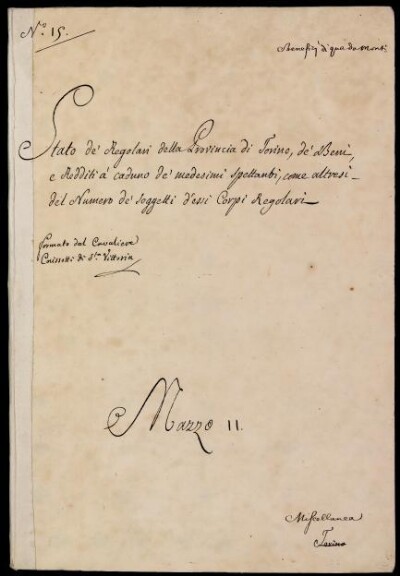 N.° 15.
Benefizj di qua da monti
Stato de' Regolari della Provincia di Torino, de' Beni,
e Redditi à caduno de' medesimi spettanti, come altresì
del Numero de' soggetti d'essi Corpi Regolari
formato dal Cavaliere
Caissotti di S.ta Vittoria
Mazzo 11.
Miscellanea
Torino